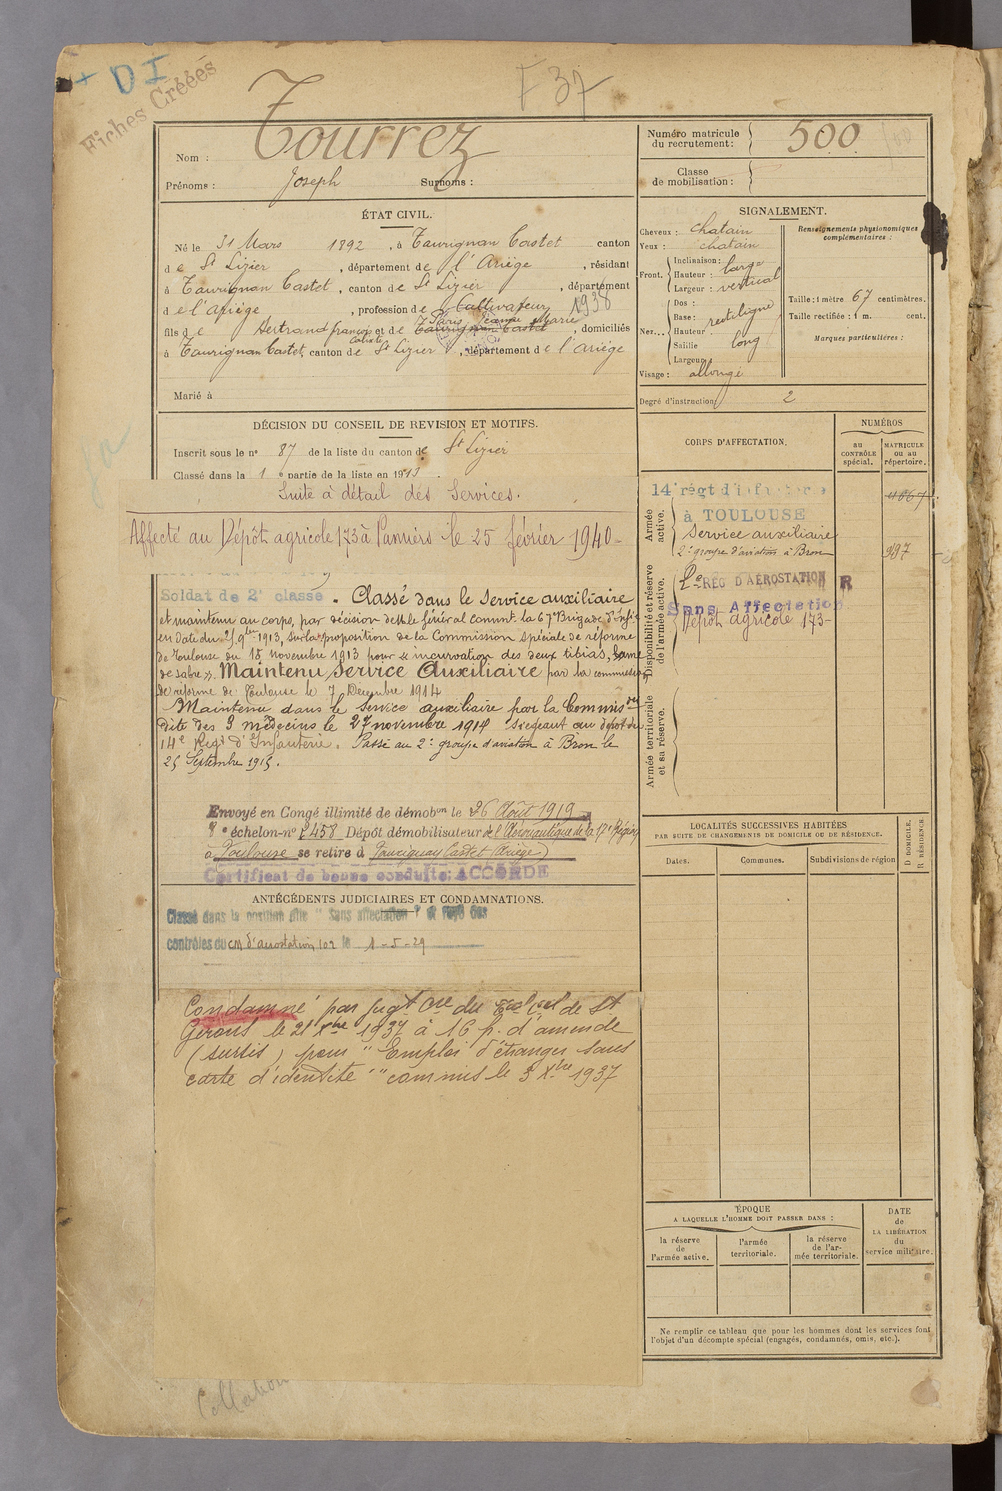 + DI
Fiches Créées
F 37
Nom : Tourrez
Prénoms : Joseph Surnoms :
Numéro matricule du recrutement : 500
Classe de mobilisation :
ÉTAT CIVIL.
Né le 31 Mars 1892, à Taurignan Castet canton
de St Lizier, département de l'Ariège, résidant
à Taurignan Castet, canton de St Lizier, département
de l'Ariège, profession de Cultivateur 1938
fils de Bertrand françois et de Jeanne Marie, domiciliés
à Taurignan Castet, canton de St Lizier, département de l'Ariège
Marié à
SIGNALEMENT.
Cheveux : chatain
Yeux : chatain
Front. Inclinaison :
Hauteur : large
Largeur : vertical
Nez. Dos :
Base : rectiligne
Hauteur
Saillie long
Largeur
Visage : allongé
Renseignements physionomiques complémentaires :
Taille : 1 mètre 67 centimètres.
Taille rectifiée : 1 m. cent.
Marques particulières :
Degré d'instruction : 2
DÉCISION DU CONSEIL DE REVISION ET MOTIFS.
Inscrit sous le n° 87 de la liste du canton de St Lizier
Classé dans la 1e partie de la liste en 1913
Suite à détail des Services.
Affecté au Dépôt agricole 173 à Pamiers le 25 février 1940
Soldat de 2e classe. Classé dans le Service auxiliaire
et maintenu au corps, par décision de Mr le Général commt la 67e Brigade d'Infie
en date du 25 9bre 1913, sur la proposition de la Commission spéciale de réforme
de Toulouse du 18 novembre 1913 pour « incurvation des deux tibias, lame
de sabre ». Maintenu Service Auxiliaire par la commission
de réforme de Toulouse le 7 Décembre 1914
Maintenu dans le Service auxiliaire par la Commison
dite des 3 médecins le 27 novembre 1914 siégeant au dépôt du
14e Régt d'Infanterie. Passé au 2e groupe d'aviation à Bron le
25 Septembre 1915.
Envoyé en Congé illimité de démobon le 26 Août 1919
8e échelon n° 2458 Dépôt démobilisateur de l'Aéronautique de la 17e Région
à Toulouse se retire à Taurignan Castet (Ariège)
Certificat de bonne conduite : ACCORDÉ
ANTÉCÉDENTS JUDICIAIRES ET CONDAMNATIONS.
Classé dans la position dite "Sans affectation" et rayé des
contrôles du cm d'aérostation 102 le 1-5-29
Condamné par jugt Cre du Tral Cel de St
Girons le 21 Xbre 1937 à 16 f. d'amende
(sursis) pour "Emploi d'étranger sans
carte d'identité" commis le 3 Xbre 1937
CORPS D'AFFECTATION.
NUMÉROS
au CONTRÔLE spécial.
MATRICULE ou au répertoire.
Armée active.
14e régt d'infanterie
à TOULOUSE
Service auxiliaire
2e groupe d'aviation à Bron 997
Disponibilité et réserve de l'armée active.
RÉG D'AÉROSTATION R
Sans Affectation
Dépôt agricole 173
Armée territoriale et sa réserve.
LOCALITÉS SUCCESSIVES HABITÉES
PAR SUITE DE CHANGEMENTS DE DOMICILE OU DE RÉSIDENCE.
Dates.
Communes.
Subdivisions de région
D DOMICILE.
R RÉSIDENCE
ÉPOQUE
A LAQUELLE L'HOMME DOIT PASSER DANS :
la réserve de l'armée active.
l'armée territoriale.
la réserve de l'armée territoriale.
DATE de LA LIBÉRATION du service militaire.
Ne remplir ce tableau que pour les hommes dont les services font
l'objet d'un décompte spécial (engagés, condamnés, omis, etc.).
Collation